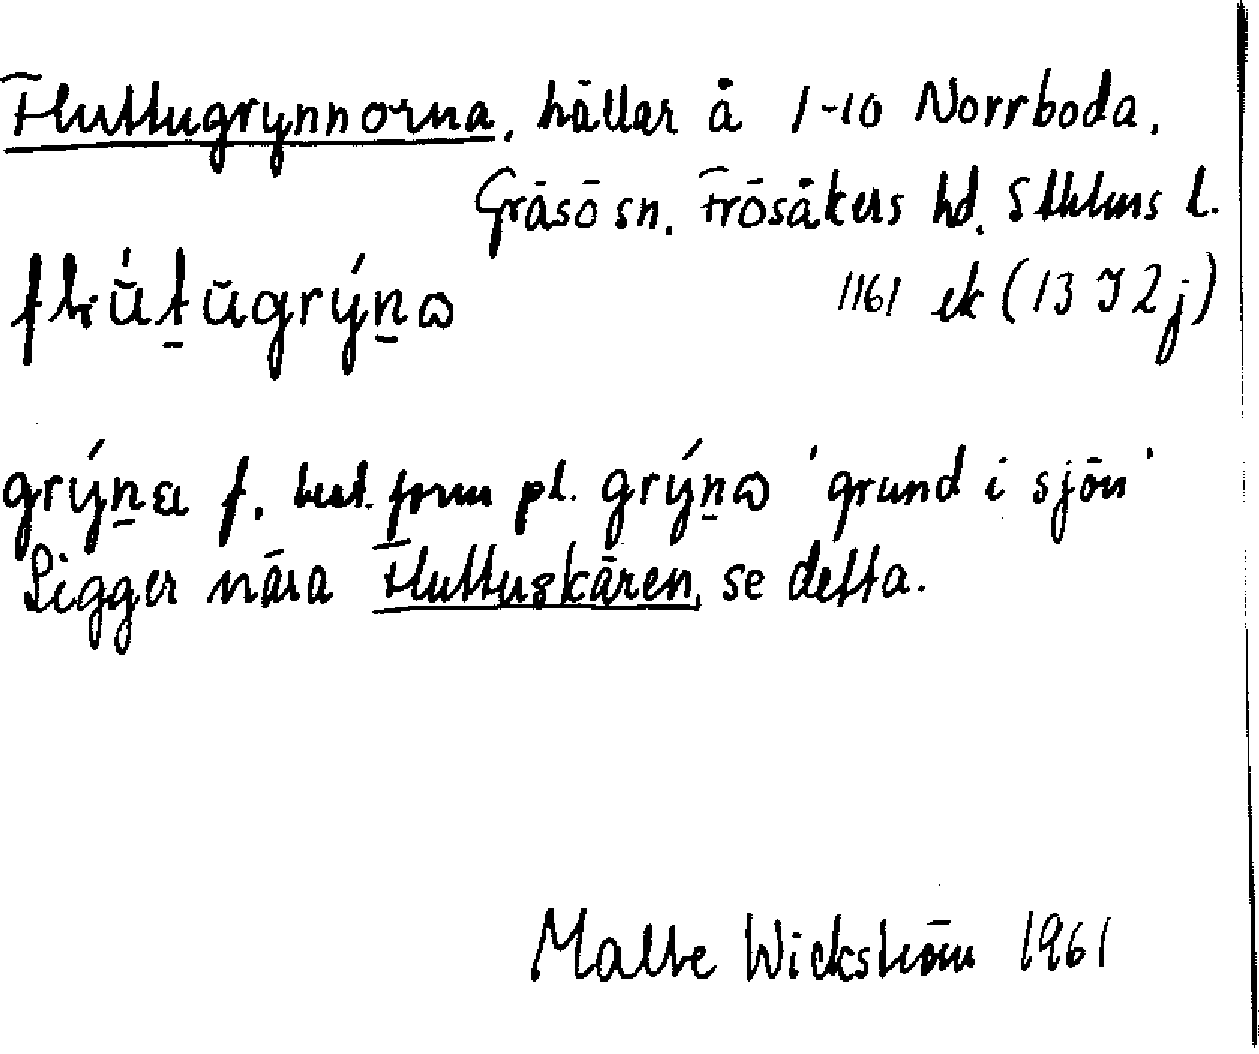 Fluttugrynnorna, hällar å 1-10 Norrboda,
Gräsö sn. Frösåkers hd. Sthlms l.
1161 ek (13 I 2 j)
grýna f. best. form pl. grýnɷ 'grund i sjön'
Ligger nära Fluttuskären, se detta.
Malte Wickström 1961